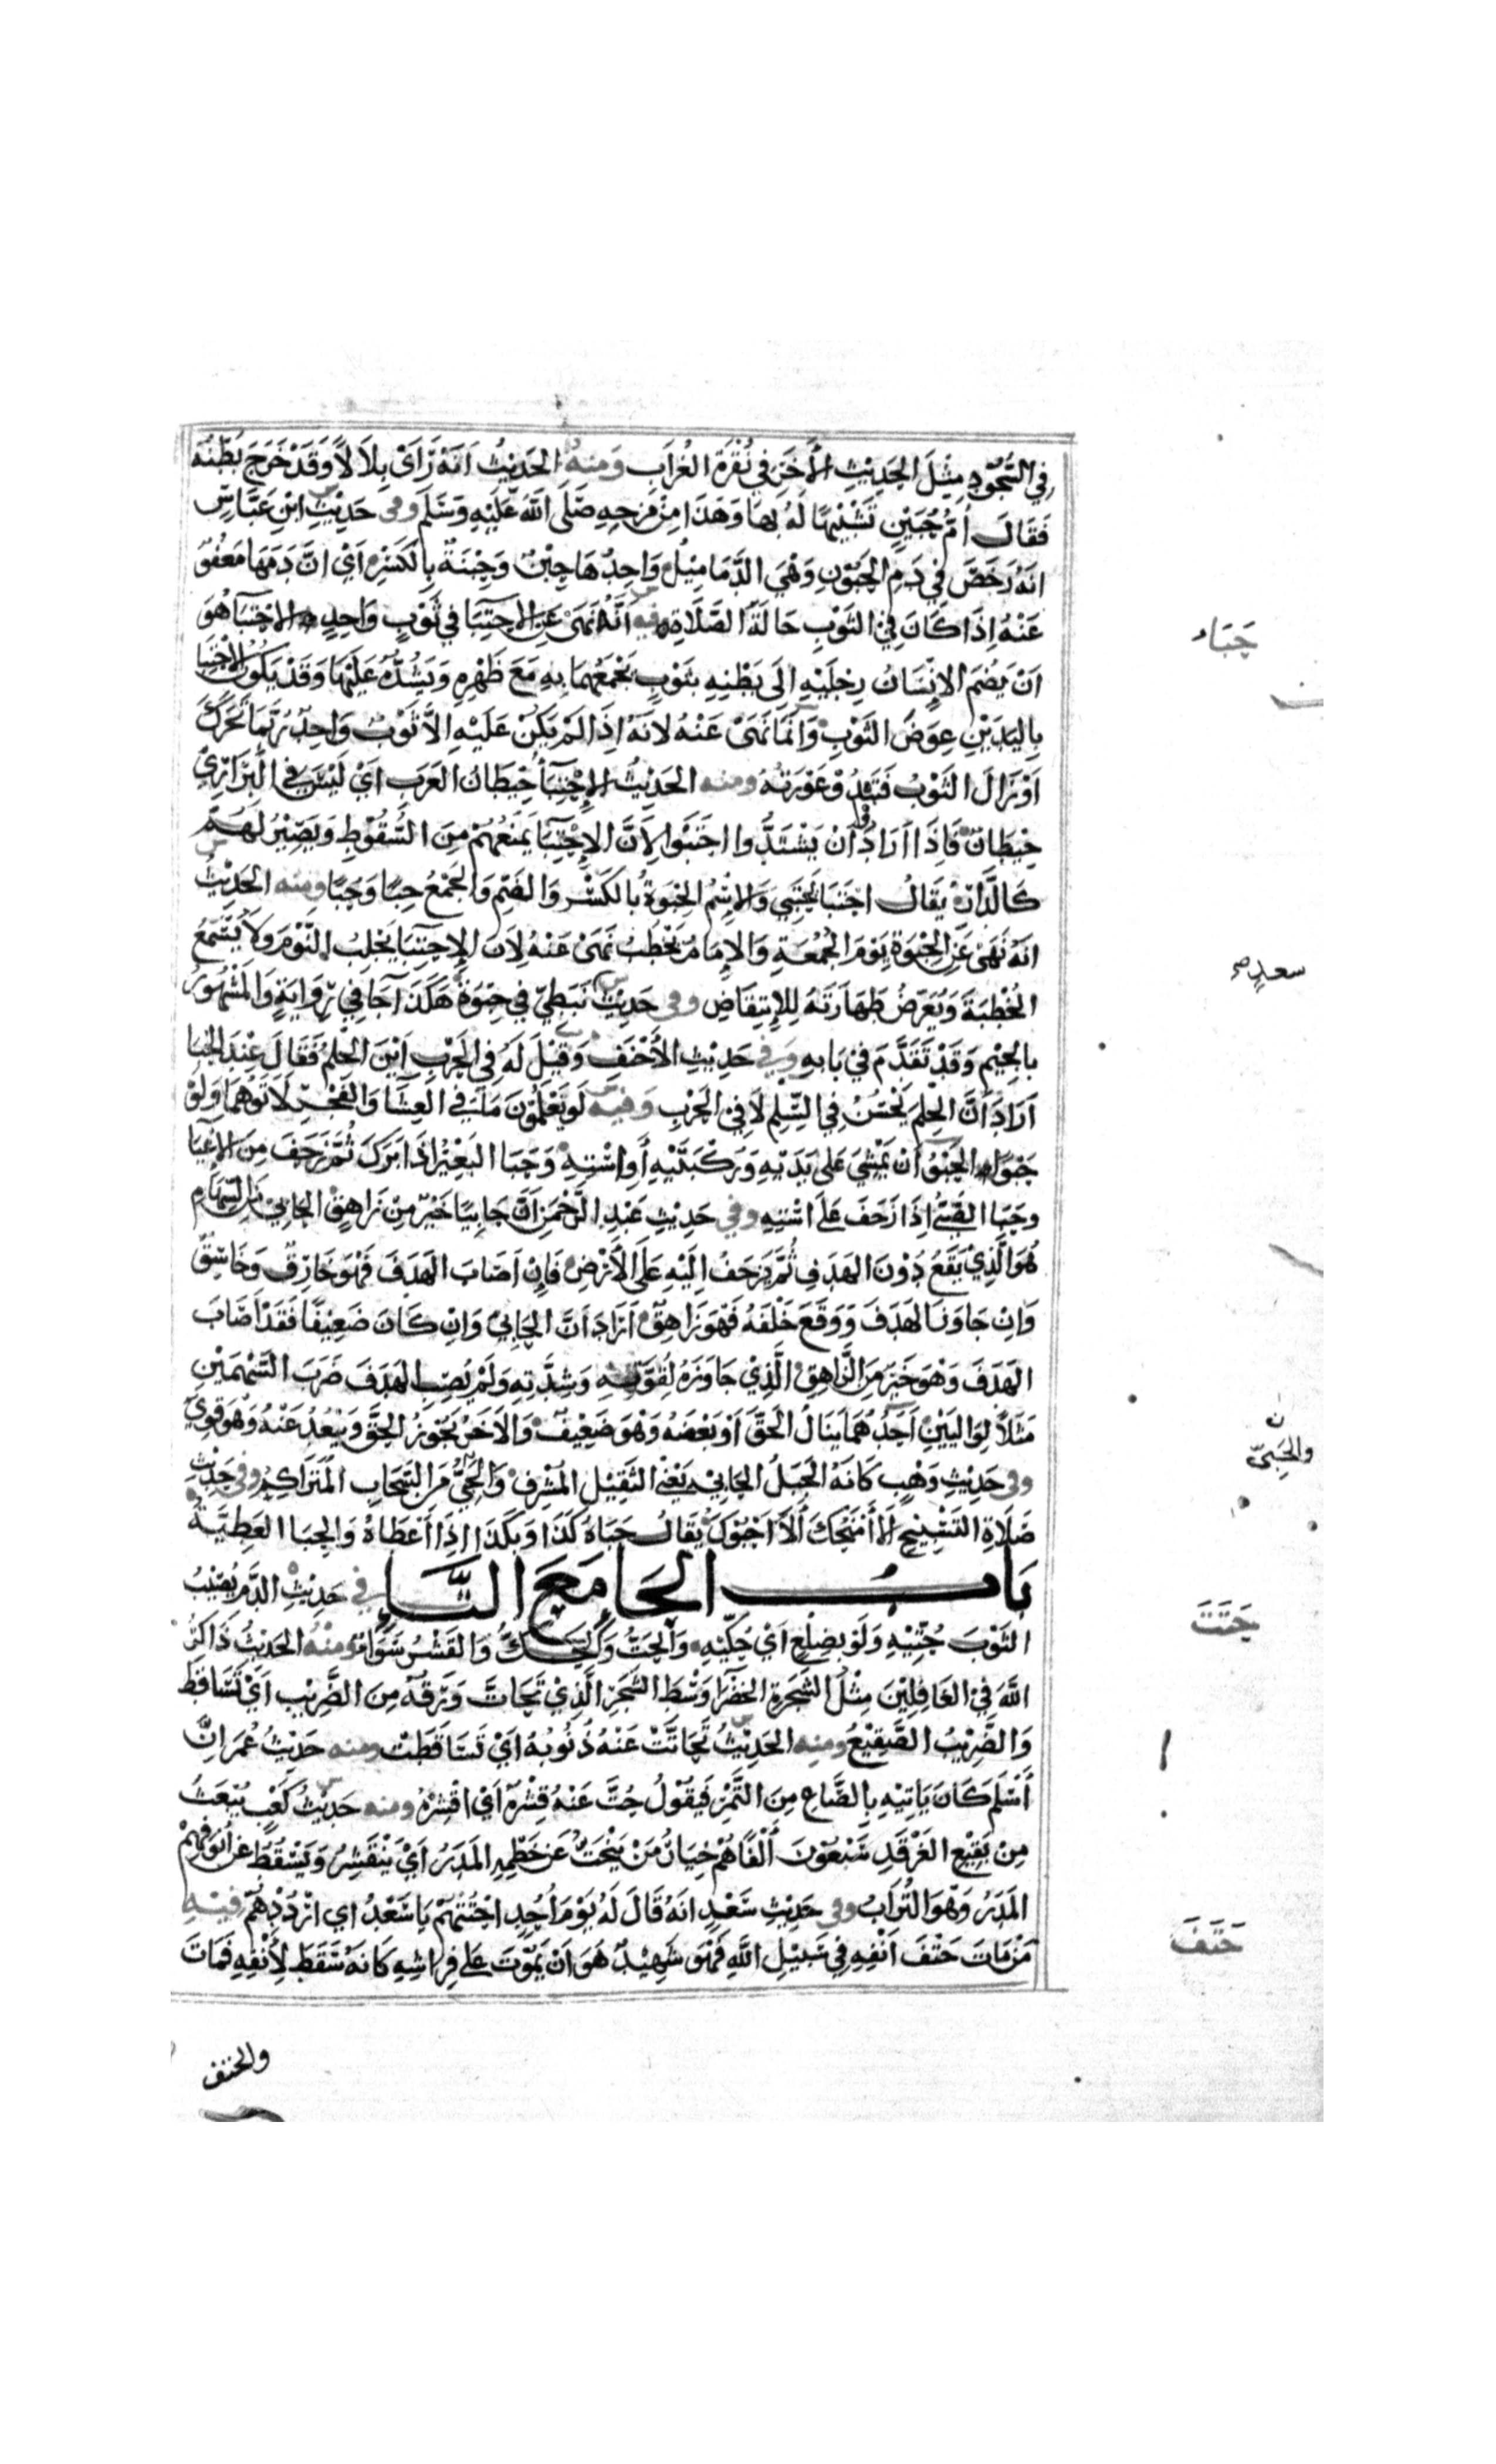 في السُّجُودِ مِثْلَ الحَدِيْثِ الأخَرِ في نُقْرَةِ الغُرَابِ وَمنهُ الحَدِيْثُ اَنَّهُ رَاَىْ بِلَالًا وَقَدْ خَرَجَ بَطْنُهُ
فَقَالَ اُمُّ حُبَيْنٍ تَشْبِيْهًا لَهُ بِهَا وَهَذَا مِنْ مَزحِهِ صَلَّى اللهُ عَلَيْهِ وَسَلَّمَ وفى حَدِيْثِ ابْنِ عَبَّاسٍ
اَنهُ رَخَّصَ في دَمِ الحُبُوْنِ وَهْيَ الدَّمَامِيْلُ وَاحِدُهَا حِبْنٌ وَحِبْنَةٌ بِالكَسْرِ اَيْ اِنَّ دَمَهَا مَعْفُوٌّ
عَنْهُ اِذَا كَانَ فِي الثَّوْبِ حَالَةَ الصَّلَاةِ فيهِ اَنَّهُ نَهَىْ عَنِ الاحْتِبَا في ثَوْبٍ وَاحِدٍ الاحْتِبَآ هُوَ
اَنْ يَضُمَّ الاِنْسَانُ رِجْلَيْهِ اِلَى بَطْنِهِ بِثَوْبٍ يَجْمَعُهُمَا بِهِ مَعَ ظَهْرِهِ وَيَشُدُّهُ عَلَيْهَا وَقَدْ يَكُوْنُ الاحْتِبَا
بِاليَدَيْنِ عِوَضَ الثَّوْبِ وَاِنَّمَا نَهَىْ عَنْهُ لاَنَّهُ اِذَا لَمْ يَكُنْ عَلَيْهِ اِلَّا ثَوْبٌ وَاحِدٌ رُبَّمَا تَحَرَّكَ
اَوْ زَالَ الثَّوْبُ فَتَبْدُوْ عَوْرَتُهُ ومنه الحَدِيْثُ الاِحْتِبَآ حِيْطَانُ العَرَبِ اَيْ لَيْسَ في البَرَارِيْ
حِيْطَانٌ فَاِذَا اَرَادُوْا اَنْ يَسْتَنِدُوا احْتَبَوْا لِاَنَّ الاِحْتِبَآ يَمْنَعُهُمْ مِنَ السُّقُوْطِ وَيَصِيْرُ لَهُمْ
كَالجِدَارِ يُقَالُ احْتَبَا يَحْتَبِيْ وَالاِسْمُ الحِبْوَةُ بِالكَسْرِ وَالضَّمِّ وَالجَمْعُ حِبًا وَحُبًا ومنه الحَدِيْثُ
اَنهُ نَهَىْ عَنِ الحِبْوَةِ يَوْمَ الجُمْعَةِ وَالاِمَامُ يَخْطُبُ نَهَىْ عَنْهُ لِاَنَّ الاِحْتِبَا يَجْلِبُ النَّوْمَ وَلَا يَسْمَعُ
الخُطْبَةَ وَيُعَرِّضُ طَهَارَتَهُ لِلاِنْتِقَاضِ وفى حَدِيْثِ نَبَطِيٌّ في حِبْوَةٍ هَكَذَا جَآ في رِوَايَةٍ وَالمَشْهُوْرُ
بالجِيْمِ وَقَدْ تَقَدَّمَ فِيْ بَابِهِ وَفي حَدِيْثِ الاَحْنَفِ وَقِيْلَ لَهُ فِي الحَرْبِ اَيْنَ الحِلْمُ فَقَالَ عِنْدَ الحُبَا
اَرَادَ اَنَّ الحِلْمَ يَحْسُنُ فِي السِّلْمِ لَا فِيْ الحَرْبِ وَفيهِ لَوْ يَعْلَمُوْنَ مَا في العِشَا وَالفَجْرِ لَاَتَوْهُمَا وَلَوْ
حَبْوًا الحَبْوُ اَنْ يَمْشِيَ عَلىْ يَدَيْهِ وَرُكْبَتَيْهِ اَوِ اسْتِهِ وَحَبَا البَعِيْرُ اِذَا بَرَكَ ثُمَّ زَحَفَ مِنَ الاِعْيَا
وحَبَا الصَّبِيُّ اِذَا زَحَفَ عَلَى اسْتِهِ وفي حَدِيْثِ عَبْدِ الرَّحْمَنِ اَنَّ حَابِيًا خَيْرٌ مِنْ زَاهِقٍ الحَابِيْ مِنَ السِّهَامِ
هُوَ الَّذِيْ يَقَعُ دُوْنَ الهَدَفِ ثُمَّ يَزْحَفُ اِلَيْهِ عَلَى الاَرْضِ فَاِنْ اَصَابَ الهَدَفَ فَهْوَ خَازِقٌ وَخَاسِقٌ
وَاِنْ جَاوَزَ الهَدَفَ وَوَقَعَ خَلْفَهُ فَهْوَ زَاهِقٌ اَرَادَ اَنَّ الحَابِيَ وَاِنْ كَانَ ضَعِيْفًا فَقَدْ اَصَابَ
الهَدَفَ وَهْوَ خَيْرٌ مِنَ الزَّاهِقِ الَّذِيْ جَاوَزَهُ لِقُوَّتِهِ وَشِدَّتِهِ وَلَمْ يُصِبِ الهَدَفَ ضَرَبَ السَّهْمَيْنِ
مَثَلًا لِوَالِيَيْنِ اَحَدُهُمَا يَنَالُ الحَقَّ اَوْ بَعْضَهُ وَهْوَ ضَعِيْفٌ وَالاَخَرُ يَجُوْزُ الحَقَّ وَيَبْعُدُ عَنْهُ وَهْوَ قَوِيٌّ
وفى حَدِيْثِ وَهْبٍ كَاَنَهُ الجَبَلُ الحَابِيْ يَعْنِيْ الثَّقِيْلَ المُشْرِفَ وَالحَبِيُّ مِنَ السَّحَابِ المُتَرَاكِمُ وفى حَدِيْثِ
صَلَاةِ التَّسْبِيْحِ اَلَا اَمْنَحُكَ اَلَا اَحْبُوْكَ يُقَالُ حَبَاهُ كَذَا وَبِكَذَا اِذَا اَعْطَاهُ وَالحِبَا العَطِيَّةُ
بَابُ الحَا مَعَ التَّاءِ في حَدِيْثِ الدَّمِ يُصِيْبُ
الثَّوْبَ حُتِّيْهِ وَلَوْ بِضِلَعٍ اَيْ حُكِّيْهِ وَالحَتُّ وَالحَكُّ وَالقَشْرُ سَوَاءٌ وَمِنْهُ الحَدِيْثُ ذَاكِرُ
اللّهَ فِيْ الغَافِلِيْنَ مِثْلُ الشَّجَرَةِ الخَضْرَا وَسْطَ الشَّجَرِ الَّذِيْ تَحَاتَّ وَرَقُهُ مِنَ الضَّرِيْبِ اَيْ تَسَاقَطَ
وَالضَّرِيْبُ الصَّقِيْعُ ومنه الحَدِيْثُ تَحَاتَّتْ عَنْهُ ذُنُوْبُهُ اَيْ تَسَاقَطَتْ ومنه حَدِيْثُ عُمَرَ اِنَّ
اَسْلَمَ كَانَ يَاتِيْهِ بِالصَّاعِ مِنَ التَّمْرِ فَيَقُوْلُ حُتَّ عَنْهُ قِشْرَهُ اَيْ اقْشِرْهُ ومنه حَدِيْثُ كَعْبٍ يُبْعَثُ
مِنْ بَقِيْعِ الغَرْقَدِ سَبْعُوْنَ اَلْفًا هُمْ خِيَارُ مَنْ يَنْحَتُّ عَنْ خَطْمِهِ المَدَرُ اَيْ يَنْقَشِرُ وَيَسْقُطُ عَنْ اُنُوْفِهِمْ
المَدَرُ وَهْوَ التُّرَابُ وفي حَدِيْثِ سَعْدٍ اَنهُ قَالَ لَهُ يَوْمَ اُحُدٍ احْتُتْهُمْ يَا سَعْدُ اي ارْدُدْهُمْ فيْهِ
مَنْ مَاتَ حَتْفَ اَنْفِهِ فِي سَبِيْلِ اللّهِ فَهْوَ شَهِيْدٌ هُوَ اَنْ يَمُوْتَ عَلى فِرَاشِهِ كَاَنهُ سَقَطَ لِاَنْفِهِ فَمَاتَ
والحتف
حَبَاء
سعد صح
ن
والحَبِيّ
حَتَتَ
حَتَفَ